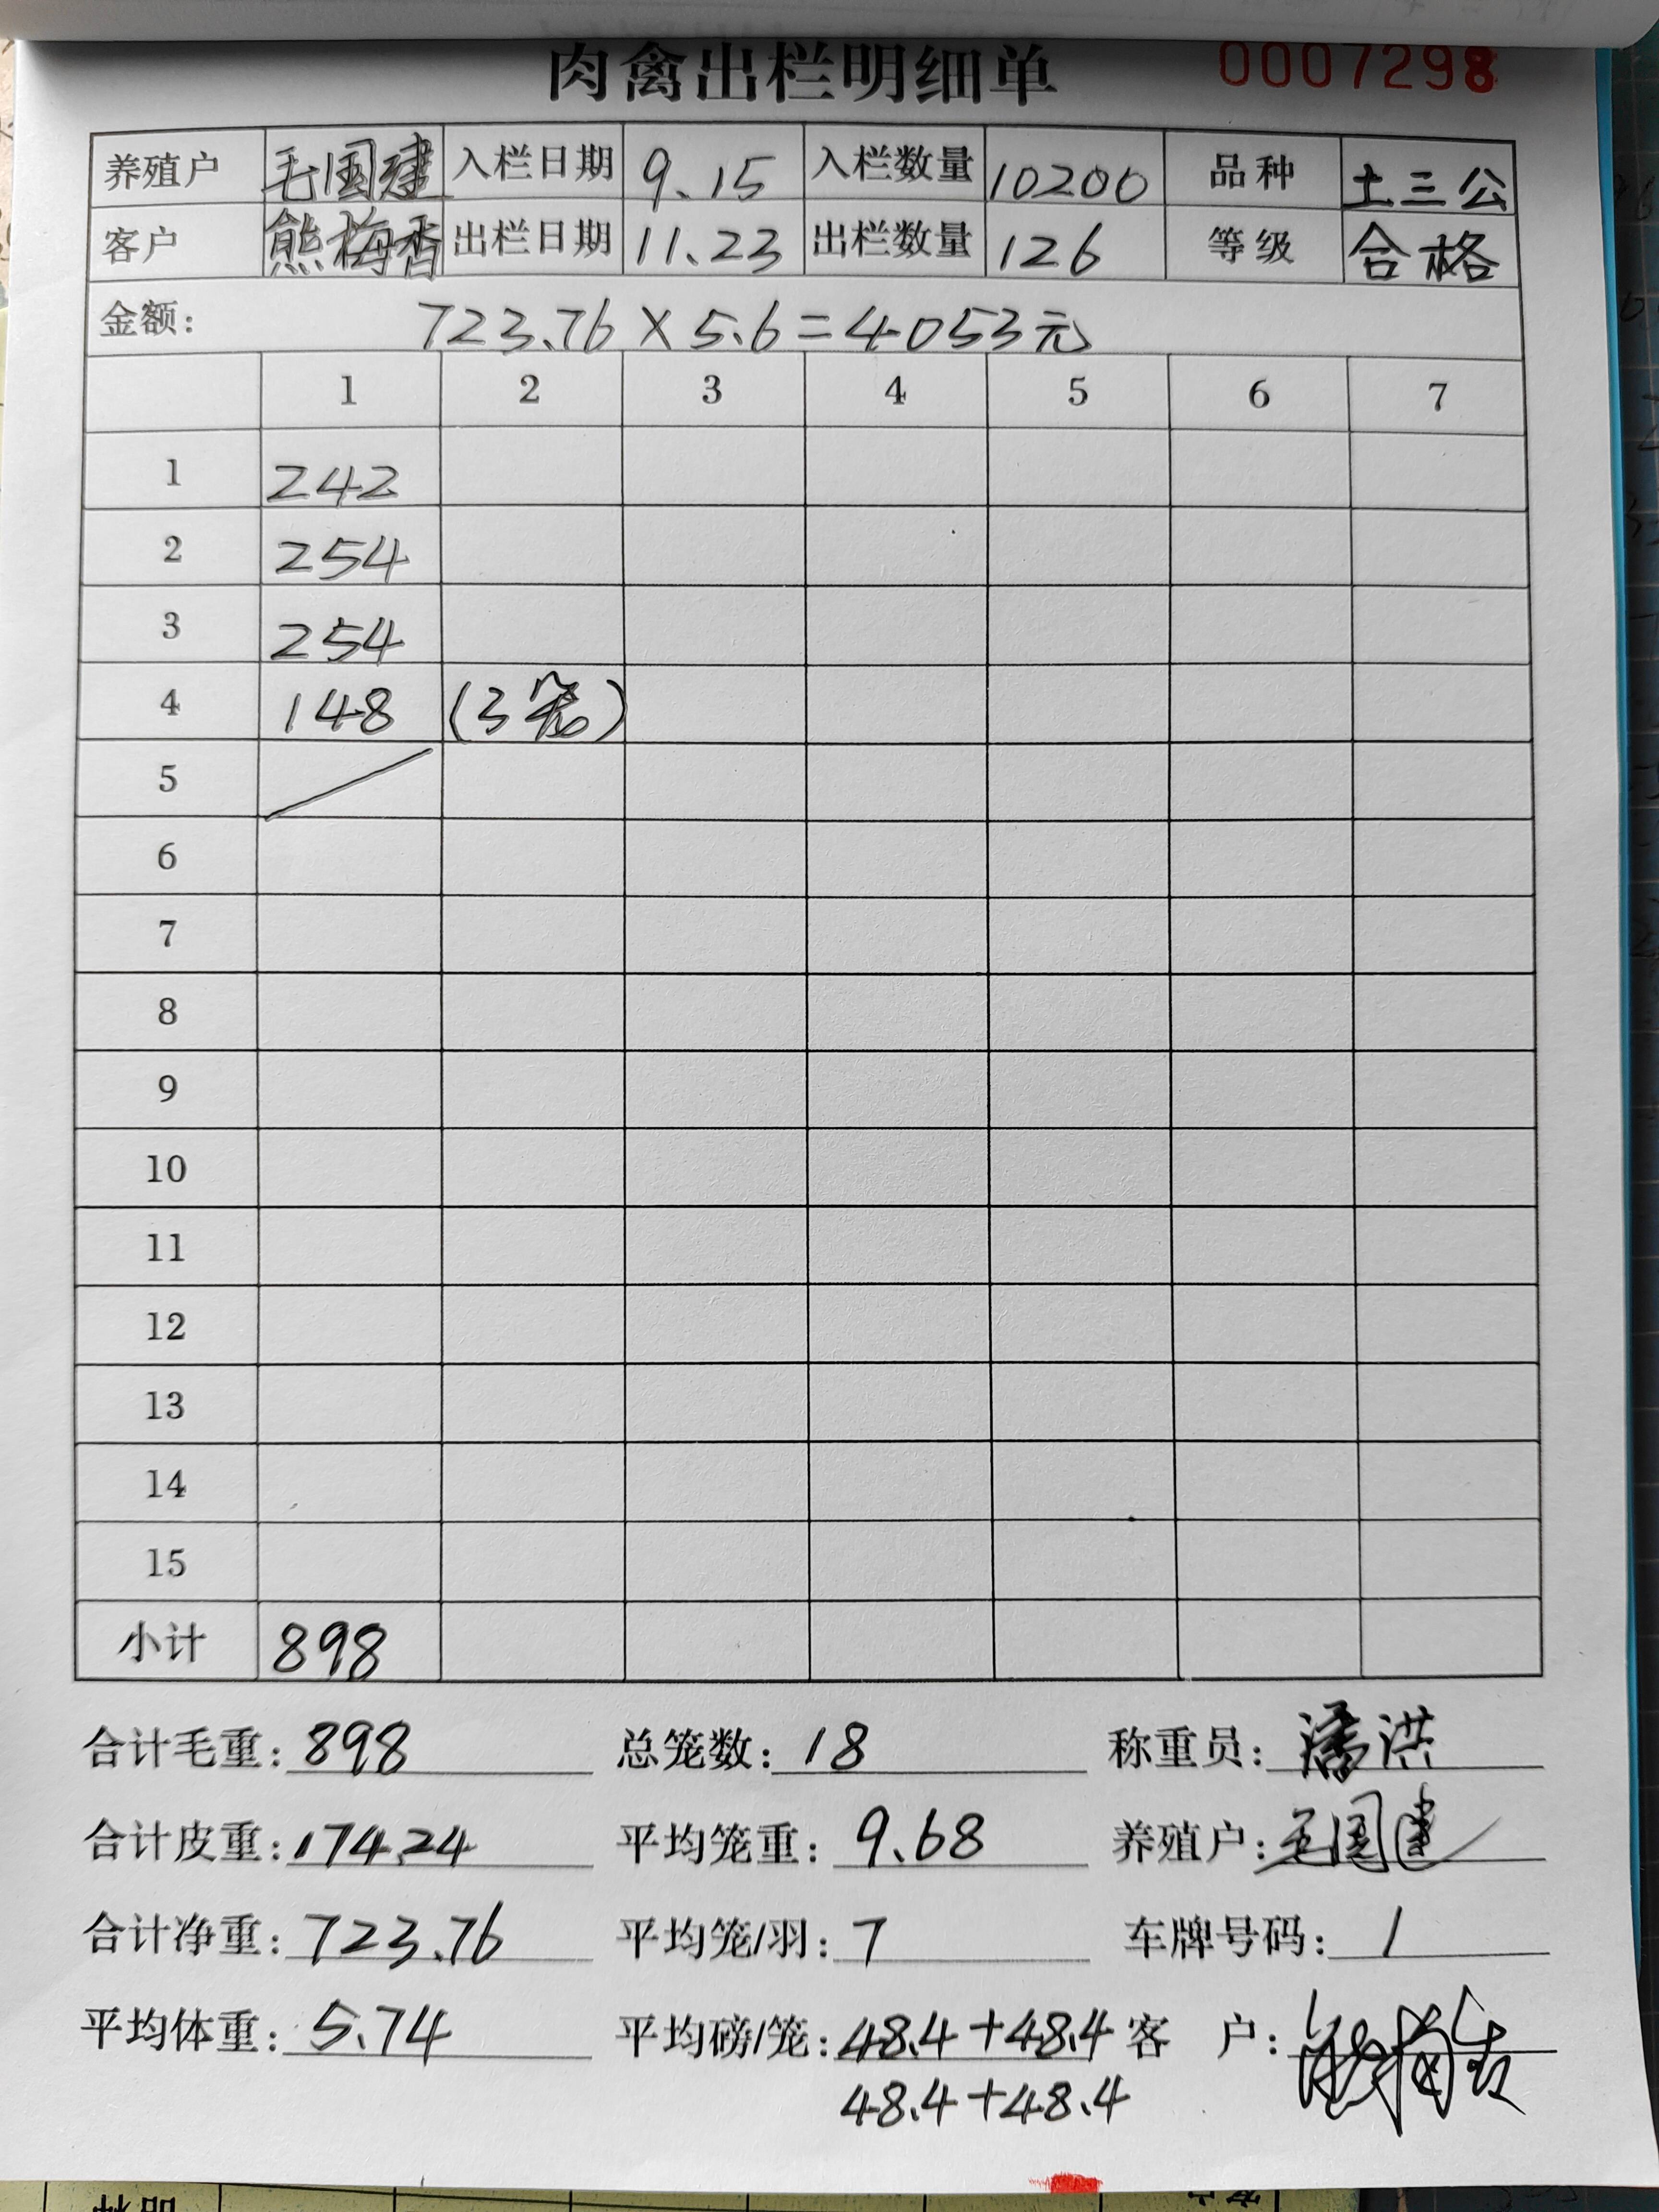 肉禽出栏明细单 0007298
养殖户 毛国建 入栏日期 9.15 入栏数量 10200 品种 土三公
客户 熊梅香 出栏日期 11.23 出栏数量 126 等级 合格
金额: 723.76×5.6=4053元
1 2 3 4 5 6 7
1 242
2 254
3 254
4 148 (3笼)
5
6
7
8
9
10
11
12
13
14
15
小计 898
合计毛重: 898 总笼数: 18 称重员: 潘洪
合计皮重: 174.24 平均笼重: 9.68 养殖户: 毛国建
合计净重: 723.76 平均笼/羽: 7 车牌号码: /
平均体重: 5.74 平均磅/笼: 48.4+48.4 客 户: 熊梅香
48.4+48.4